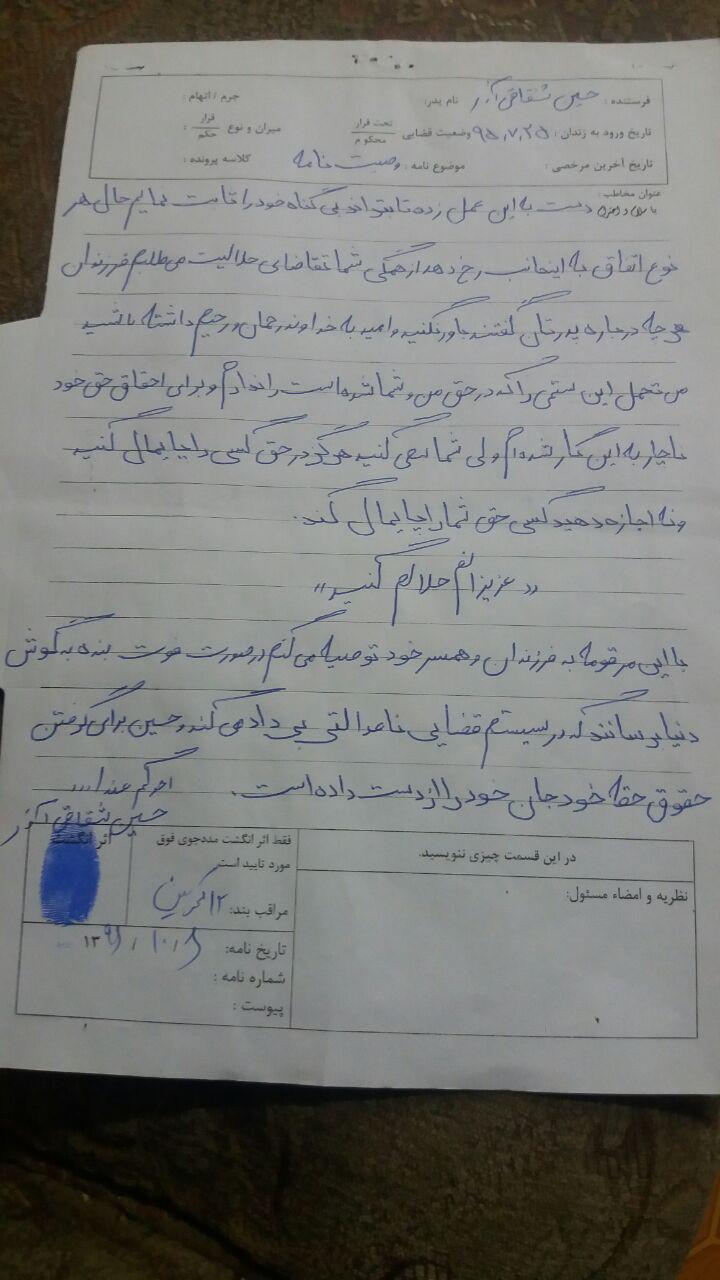 فرستنده : حسین شقاقی آذر نام پدر: جرم / اتهام :
تاریخ ورود به زندان : ۹۵،۷،۲۵ وضعیت قضایی تحت قرار / محکوم میزان و نوع قرار / حکم :
تاریخ آخرین مرخصی : موضوع نامه : وصیت نامه کلاسه پرونده :
عنوان مخاطب :
با سلام و احترام دست به این عمل زده تا بتواند بی گناه خود را ثابت نمایم حال هر
نوع اتفاق به اینجانب رخ دهد از همگی شما تقاضای حلالیت می طلبم فرزندان
هر چه درباره پدرتان گفتند باور نکنید و امید به خداوند رحمان و رحیم داشته باشید
من تحمل این ستمی را که در حق من و شما شده است را ندارم و برای احقاق حق خود
ناچار به این کار شده ام ولی شما سعی کنید هرگز در حق کسی را پایمال کنید
ونه اجازه دهید کسی حق شما را پایمال کند.
«عزیزانم حلالم کنید»
با این مرقومه به فرزندان و همسر خود توصیه می کنم در صورت فوت بنده به گوش
دنیا برسانند که در سیستم قضایی ناعدالتی بی داد می کند و حسین برای گرفتن
حقوق حقه خود جان خود را از دست داده است.
اجرکم عندا...
حسین شقاقی آذر
در این قسمت چیزی ننویسید.
نظریه و امضاء مسئول:
فقط اثر انگشت مددجوی فوق
مورد تایید است
مراقب بند: ۱۲
اثر انگشت
تاریخ نامه: / ۱۰ / ۱۳۹
شماره نامه :
پیوست :